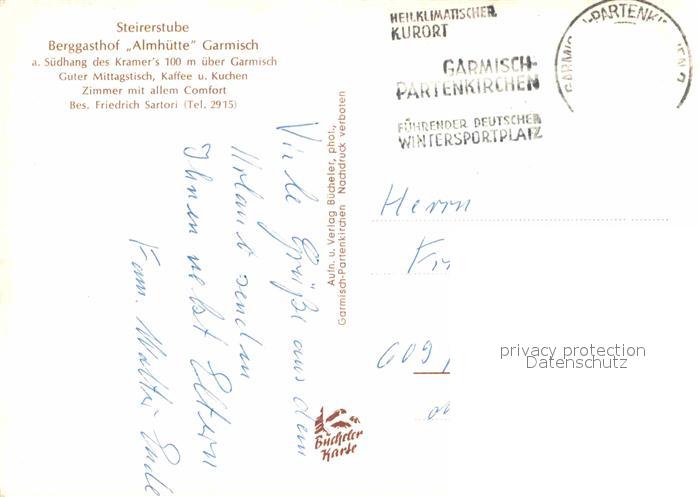 Steirerstube
Berggasthof „Almhütte" Garmisch
a. Südhang des Kramer's 100 m über Garmisch
Guter Mittagstisch, Kaffee u. Kuchen
Zimmer mit allem Comfort
Bes. Friedrich Sartori (Tel. 2915)
HEILKLIMATISCHER
KURORT
GARMISCH-
PARTENKIRCHEN
FÜHRENDER DEUTSCHER
WINTERSPORTPLATZ
GARMISCH-PARTENKIRCHEN
Viele Grüße aus dem
Urlaub senden
Ihnen nebst Eltern
Fam. Walter
Aufn. u. Verlag Bücheler, phot.,
Garmisch-Partenkirchen Nachdruck verboten
Bücheler
Karte
Herrn
609
privacy protection
Datenschutz